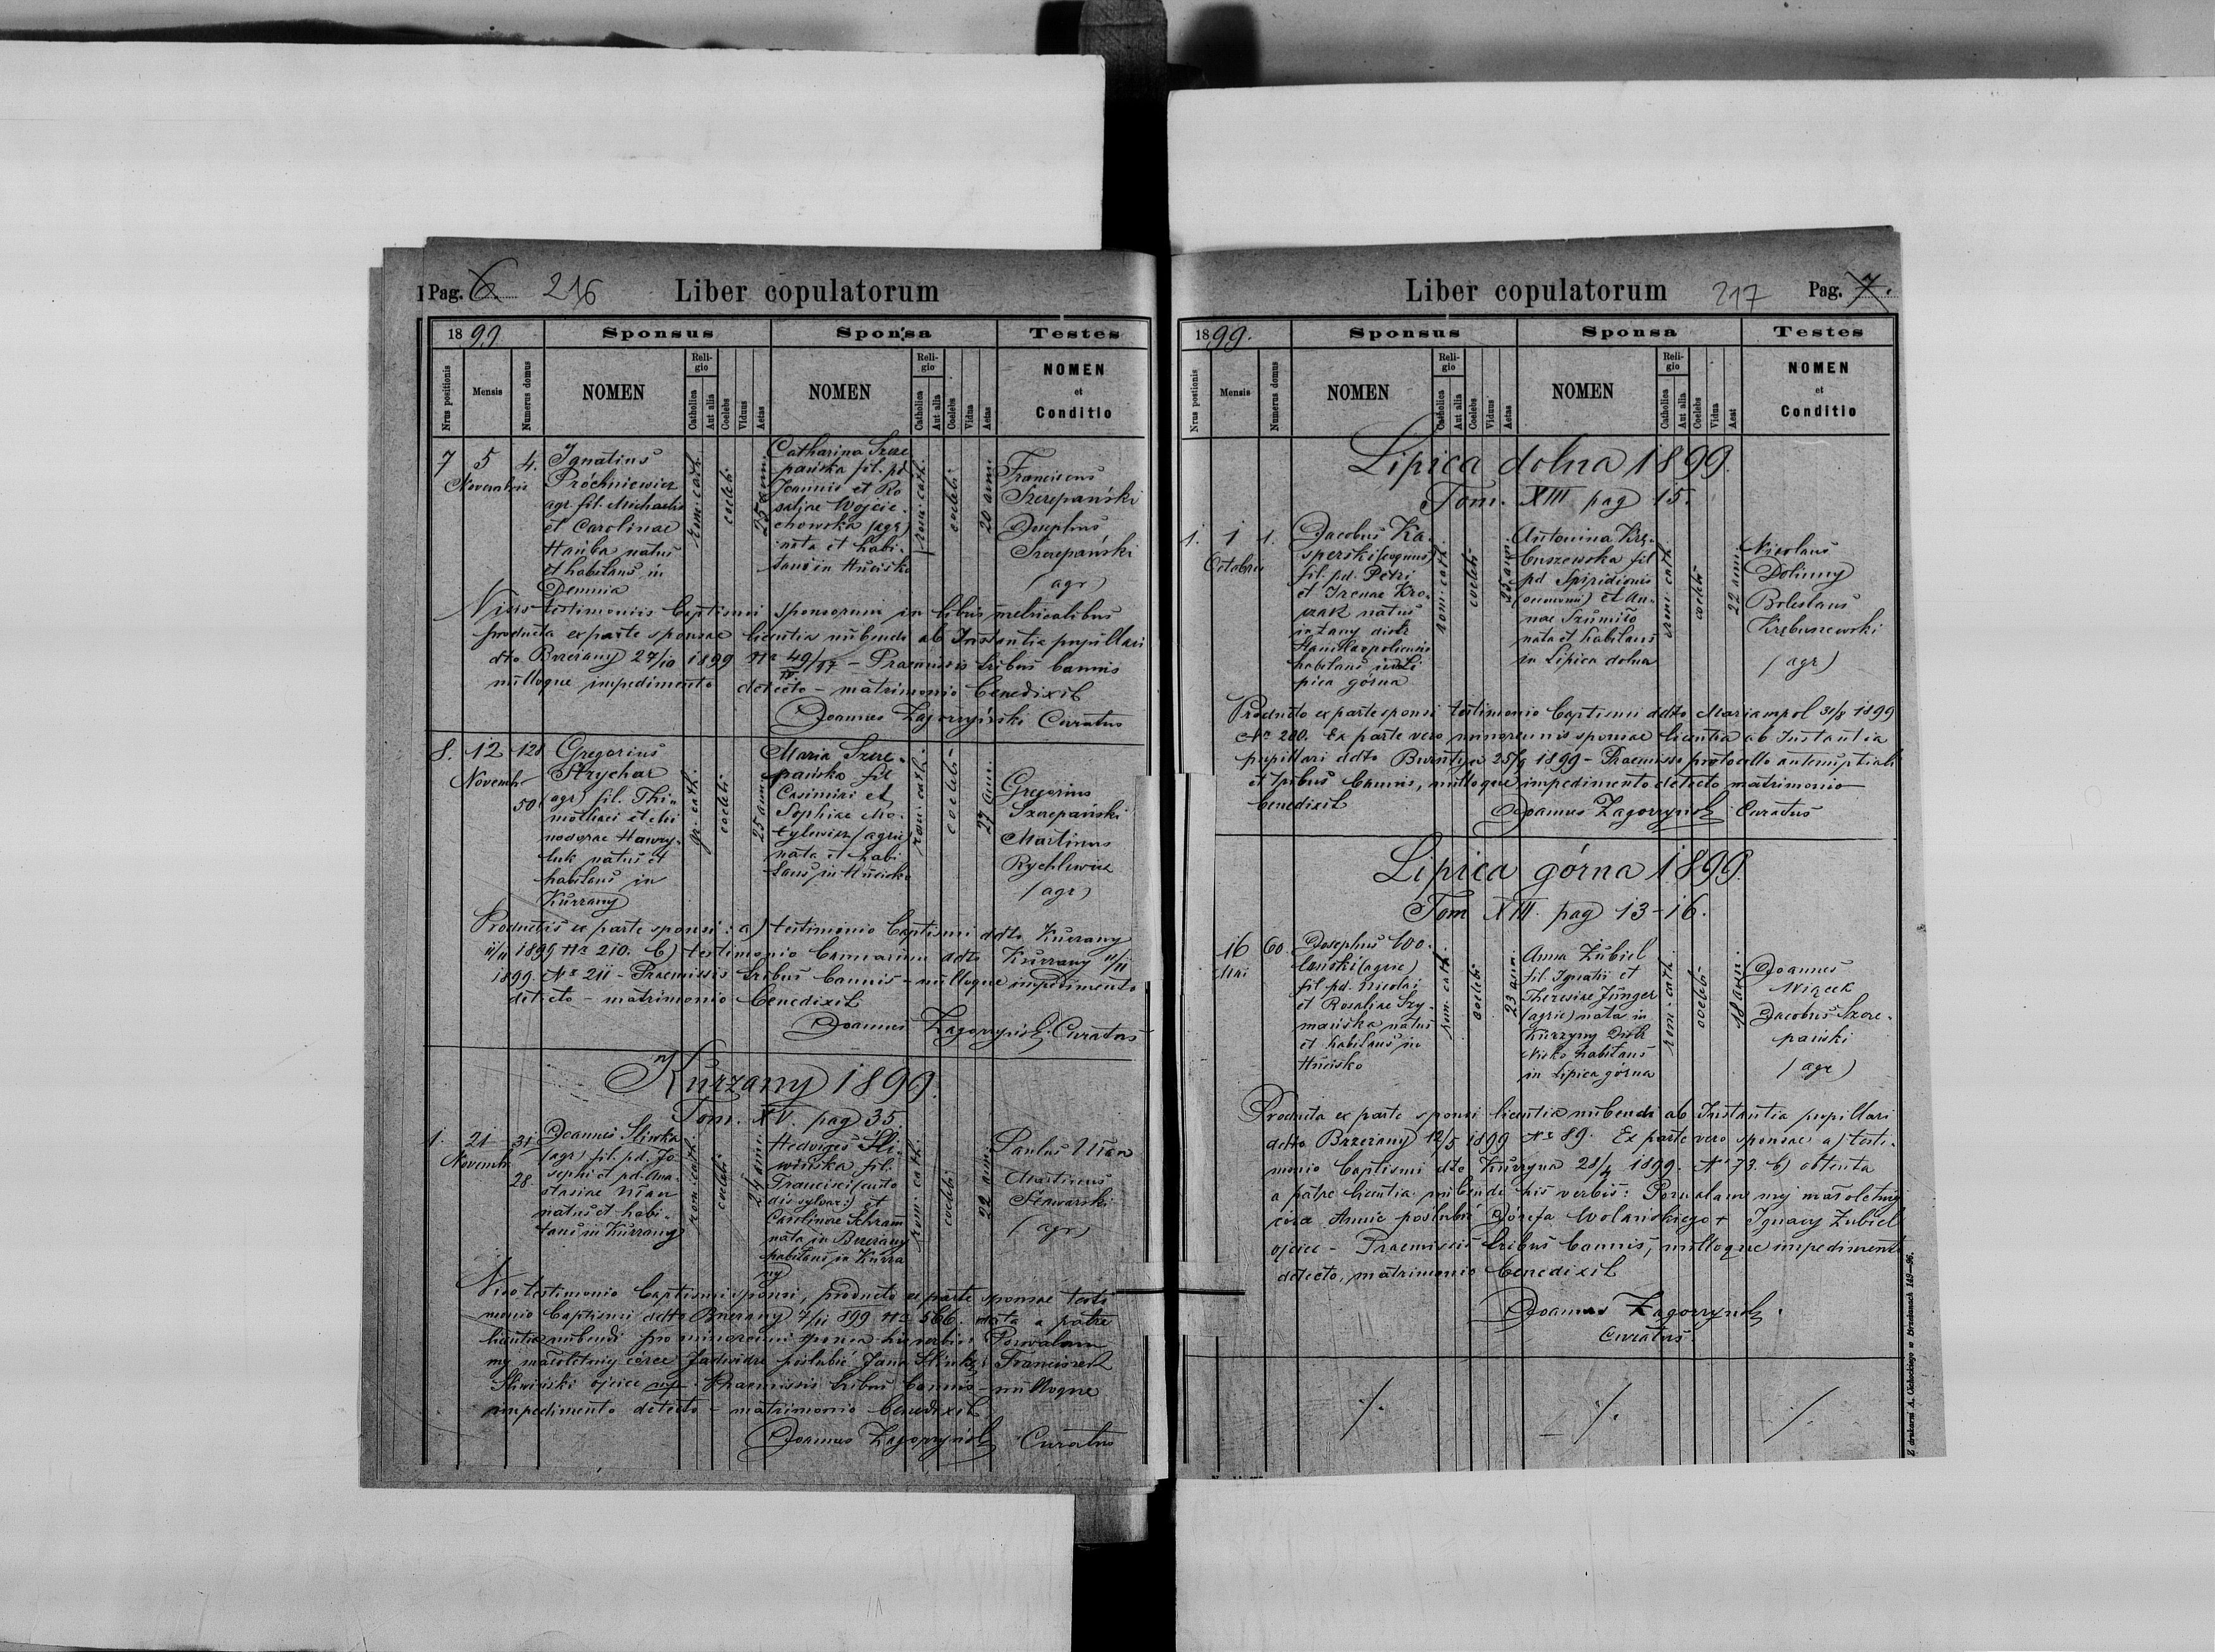 Pag. 6 216 Liber copulatorum
1899 Sponsus Sponsa Testes
Nrus positionis Mensis Numerus domus NOMEN Religio Catholica Aut alia Coelebs Viduus Aetas NOMEN Religio Catholica Aut alia Coelebs Vidua Aetas NOMEN et Conditio
7 5 Novembris 4.
Ignatius
Próchniewicz
agr fil. Michaelis
et Carolinae
Hańba natus
et habitans in
Demnia
rom. cath.
coelebs
25 ann.
Catharina Szcze
pańska fil. pd
Joannis et Ro
saliae Wojcie-
chowska (agr)
nata et habi-
tans in Huciska
rom. cath.
coelebs
20 ann.
Franciscus
Szczepański
Josephus
Szczepański
(agr)
Visis testimoniis baptismi sponsorum in libris metricalibus
producta ex parte sponsae licentia nubendi ab Instantia pupillari
dto Brzeżany 27/10 1899 No 49/97 IV – Praemissis tribus bannis
nulloque impedimento detecto – matrimonio benedixit
Joannes Zagorzyński Curatus
8. 12 Novembr 128 50
Gregorius
Strychar
(agr) fil. Thi-
mothaei et
Hawry-
luk natus et
habitans in
Kurzany
gr. cath.
coelebs
25 ann.
Maria Szcze-
pańska fil
Casimiri et
Sophiae Mo-
tylewicz (agric)
nata et habi
tans in Huciska
rom. cath.
coelebs
27 ann.
Gregorius
Szczepański
Martinus
Rychlewicz
(agr)
Productis ex parte sponsi: a) testimonio baptismi ddto Kurzany
11/11 1899 No 210. b) testimonio bannorum ddto Kurzany 11/11
1899 No 211 – Praemissis tribus bannis – nulloque impedimento
detecto – matrimonio benedixit
Joannes Zagorzyński Curatus
Kurzany 1899.
Tom. XV. pag 35.
1. 21 Novemb. 31 28.
Joannes Śliwka
(agr) fil. pd. Jo-
sephi et pd. Ana-
stasiae Uran
natus et habi-
tans in Kurzany
rom. cath.
coelebs
24 ann.
Hedviges Śli-
wińska fil.
Francisci (custo
dis sylvar:) et
Carolinae Schram
nata in Brzeżany
habitans in Kurza
ny
rom. cath.
coelebs
22 ann.
Paulus Uran
Martinus
Stawarski
(agr)
Viso testimonio baptismi sponsi, producto ex parte sponsae testi
monio baptismi ddto Brzeżany 7/11 899 No 566. data a patre
licentia nubendi pro minorenni sponsa his verbis: Pozwalam
mej małoletniej córce Jadwidze poślubić Jana Śliwkę: Franciszek
Śliwiński ojciec mp. Praemissis tribus bannis – nulloque
impedimento detecto – matrimonio benedixit
Joannes Zagorzyński Curatus
Liber copulatorum 217 Pag. 7.
1899. Sponsus Sponsa Testes
Nrus positionis Mensis Numerus domus NOMEN Religio Catholica Aut alia Coelebs Viduus Aetas NOMEN Religio Catholica Aut alia Coelebs Vidua Aetat NOMEN et Conditio
Lipica dolna 1899.
Tom. XIII pag 15.
1. 1 Octobris 1.
Jacobus Ka-
sperski
fil. pd. Petri
et Irenae Kro-
czak natus
in Jany distr
Stanislaopoliensis
habitans in Li
pica górna
rom. cath.
coelebs
25 ann.
Antonina Krę-
buszewska fil
pd Spiridionis
et An-
nae Szumiło
nata et habitans
in Lipica dolna
rom. cath.
coelebs
22 ann.
Nicolaus
Dolinny
Boleslaus
Krębuszewski
(agr)
Producto ex parte sponsi testimonio baptismi ddto Mariampol 31/8 1899
No 200. Ex parte vero minorennis sponsae licentia ab Instantia
pupillari ddto Bursztyn 25/9 1899 – Praemisso protocollo antenuptiali
et tribus bannis, nulloque impedimento detecto matrimonio
benedixit Joannes Zagorzyński Curatus
Lipica górna 1899.
Tom XIII. pag 13-16.
16 Mai 60.
Josephus Wo-
lański (agric)
fil. pd. Nicolai
et Rosaliae Szy-
mańska natus
et habitans in
Hucisko
rom. cath.
coelebs
23 ann.
Anna Zubiel
fil. Ignatii et
Theresiae Jünger
(agric) nata in
Kurzyny Distr
Nisko habitans
in Lipica górna
rom. cath.
coelebs
18 ann.
Joannes
Wiącek
Jacobus Szcze-
pański
(agr)
Producta ex parte sponsi licentia nubendi ab Instantia pupillari
ddto Brzeżany 12/5 1899 No 89. Ex parte vero sponsae a) testi-
monio baptismi dto Kurzyna 28/4 1899. No 73. b) obtenta
a patre licentia nubendi his verbis: Pozwalam mej małoletniej
córce Annie poślubić Józefa Wolańskiego + Ignacy Zubiel
ojciec – Praemissis tribus bannis, nulloque impedimento
detecto, matrimonio benedixit
Joannes Zagorzyński
Curatus.
Z drukarni A. Cichockiego w Brzeżanach 149—96.